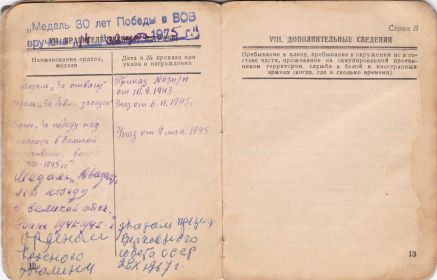 „Медаль 30 лет Победы в ВОВ
вручена 1975 г."
Наименование ордена, медали
Дата и № приказа или указа о награждении
Медаль „За отвагу"
Приказ №030/н
от 10.9.1943.
Медаль „За боевые заслуги"
Указ от 6.11.1945.
Медаль „За победу над
в Великой
Отечественной войне
1941-1945 гг."
Указ от 9 мая 1945
Медаль „Двадцать
лет победы
в великой отеч.
войне 1941-1945 г.
Орденом
Красного
Знамени
указом През.
Верховного
Совета СССР
1967 г.
Серия В
VIII. ДОПОЛНИТЕЛЬНЫЕ СВЕДЕНИЯ
Пребывание в плену, пребывание в окружении не в со-
ставе части, проживание на оккупированной против-
ником территории, служба в белой и иностранных
армиях (когда, где и сколько времени)
13